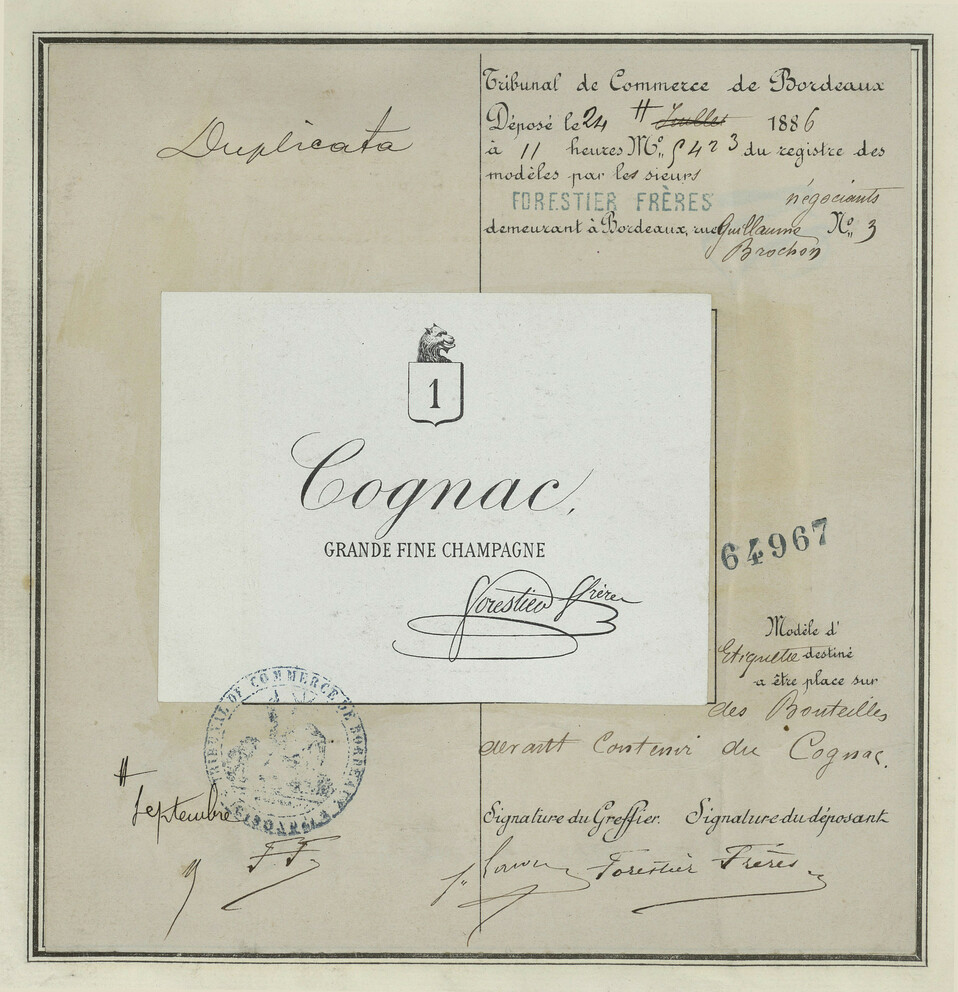 Duplicata
Tribunal de Commerce de Bordeaux
Déposé le 24 # Juillet 1886
à 11 heures No. 5423 du registre des
modèles par les sieurs
FORESTIER FRÈRES négociants
demeurant à Bordeaux, rue Guillaume No. 3
Brochon
1
Cognac,
GRANDE FINE CHAMPAGNE
Forestier Frères
64967
Modèle d'
Etiquette destiné
a être place sur
des Bouteilles
devant Contenir du Cognac.
TRIBUNAL DE COMMERCE DE BORDEAUX
#
Septembre
F. F.
Signature du Greffier. Signature du déposant
Forestier Frères